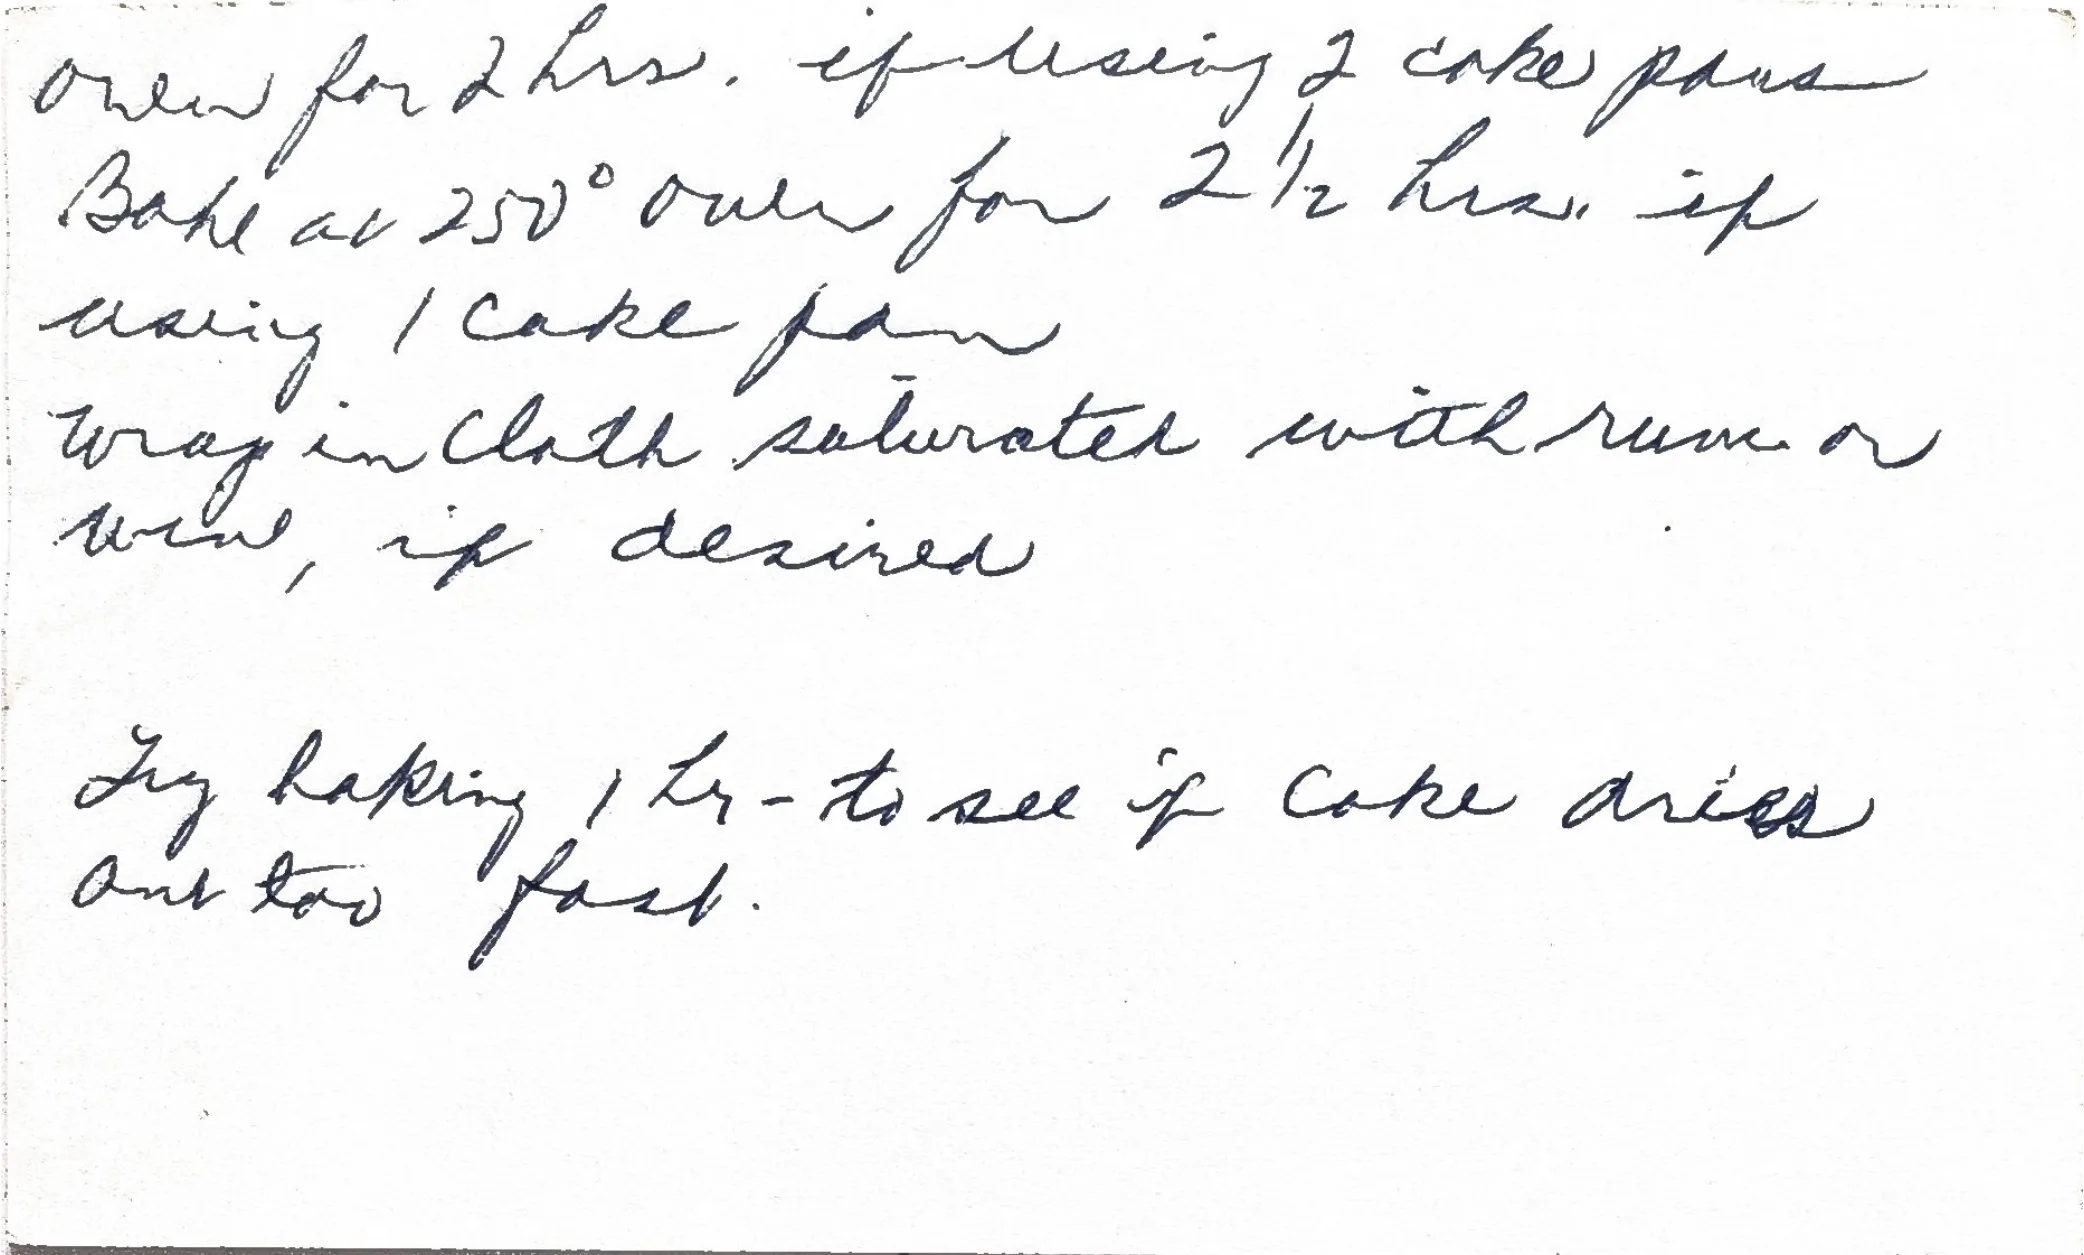 oven for 2 hrs. if using 2 cake pans
Bake at 250° oven for 2 1/2 hrs. if
using 1 cake pan
Wrap in cloth saturated with rum or
wine, if desired
Try baking 1 hr - to see if cake dries
out too fast.